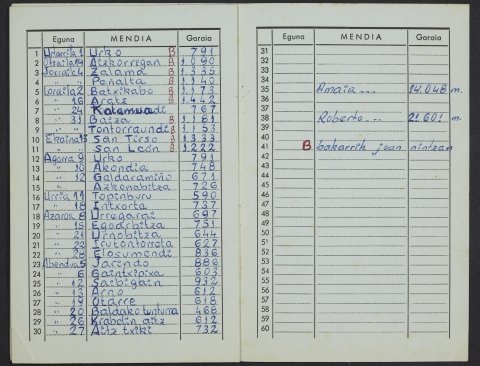 Eguna MENDIA Garaia
1 Urtarrila 1 Urko B 791
2 Otsaila 14 Aizkorrigan B 1.090
3 Jorraila 4 Zalama B 1.335
4 " " Peñalta B 1.140
5 Loraila 2 Batxikabo B 1.173
6 " 16 Aratz B 1.442
7 " 24 Kalamuadi 767
8 " 31 Baiza B 1.181
9 " " Tontorraundi B 1.153
10 Ekaina 13 San Tirso B 1.333
11 " " San León B 1.222
12 Agorra 9 Urko 791
13 " 10 Akondia 748
14 " 12 Galdaramiño 671
15 " " Azkonabitza 726
16 Urria 11 Topinburu 590
17 " 18 Intxorta 737
18 Azaroa 8 Urregarai 697
19 " 15 Egoarbitza 751
20 " 21 Urnobitza 644
21 " 22 Irutontorreta 627
22 " 28 Elosumendi 836
23 Abendua 5 Jarindo 886
24 " 6 Gaintxipixa 603
25 " 12 Saibigain 932
26 " 13 Arno 612
27 " 19 Otarre 618
28 " 20 Baldako tuntuna 468
29 " 26 Krabelin aitz 612
30 " 27 Aitz txiki 732
Eguna MENDIA Garaia
31
32
33
34
35 Amaia... 14.048 m.
36
37
38 Roberto... 21.601 m.
39
40
41 B bakarrik joan nintzan
42
43
44
45
46
47
48
49
50
51
52
53
54
55
56
57
58
59
60